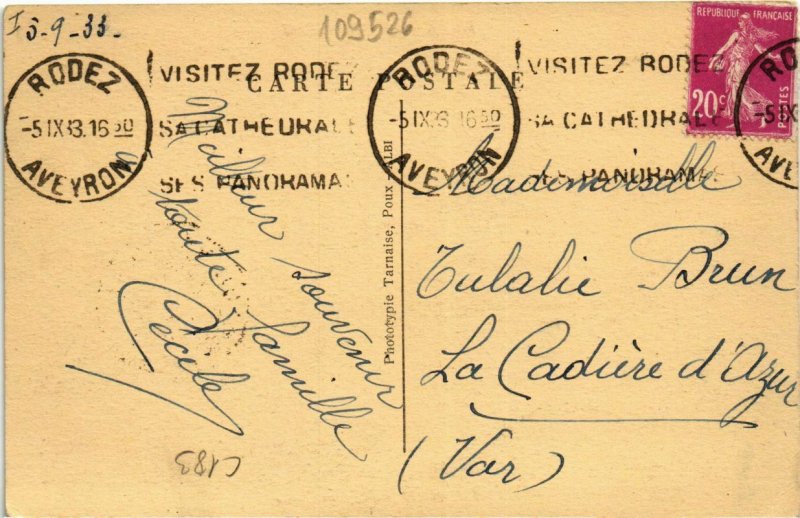 I 5-9-33-
109526
CARTE POSTALE
RODEZ
-5 IX 33.16 50
AVEYRON
VISITEZ RODEZ
SA CATHEDRALE
SES PANORAMAS
RODEZ
-5 IX 33 16 50
AVEYRON
VISITEZ RODEZ
SA CATHEDRALE
SES PANORAMAS
RO
-5 IX
AVE
REPUBLIQUE FRANÇAISE
20c
POSTES
Meilleur souvenir
à toute famille
Cécile
Phototypie Tarnaise, Poux ALBI
Mademoiselle
Eulalie Brun
La Cadière d'Azur
(Var)
C183